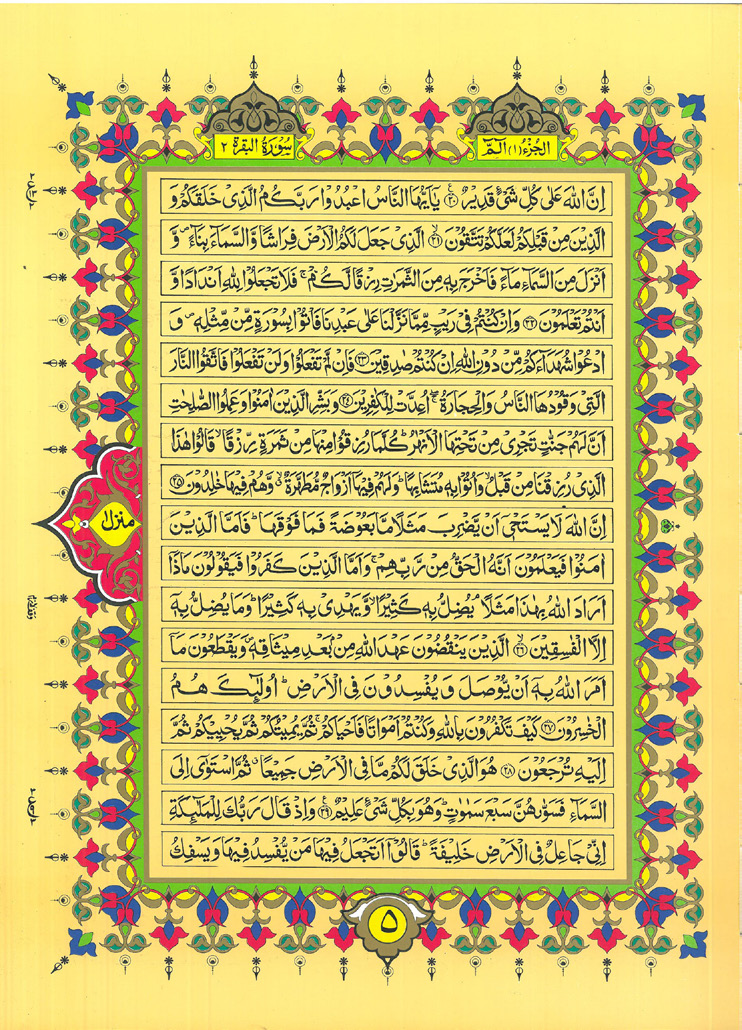 الجزء (١) الٓمّٓ
سورة البقرة ٢
اِنَّ اللّٰهَ عَلٰى كُلِّ شَىْءٍ قَدِيْرٌ ٢٠ يٰٓاَيُّهَا النَّاسُ اعْبُدُوْا رَبَّكُمُ الَّذِىْ خَلَقَكُمْ وَ
الَّذِيْنَ مِنْ قَبْلِكُمْ لَعَلَّكُمْ تَتَّقُوْنَ ٢١ الَّذِىْ جَعَلَ لَكُمُ الْاَرْضَ فِرَاشًا وَّالسَّمَآءَ بِنَآءً ۪ وَّ
اَنْزَلَ مِنَ السَّمَآءِ مَآءً فَاَخْرَجَ بِهٖ مِنَ الثَّمَرٰتِ رِزْقًا لَّكُمْ ۚ فَلَا تَجْعَلُوْا لِلّٰهِ اَنْدَادًا وَّ
اَنْتُمْ تَعْلَمُوْنَ ٢٢ وَاِنْ كُنْتُمْ فِىْ رَيْبٍ مِّمَّا نَزَّلْنَا عَلٰى عَبْدِنَا فَاْتُوْا بِسُوْرَةٍ مِّنْ مِّثْلِهٖ ۪ وَ
ادْعُوْا شُهَدَآءَكُمْ مِّنْ دُوْنِ اللّٰهِ اِنْ كُنْتُمْ صٰدِقِيْنَ ٢٣ فَاِنْ لَّمْ تَفْعَلُوْا وَلَنْ تَفْعَلُوْا فَاتَّقُوا النَّارَ
الَّتِىْ وَقُوْدُهَا النَّاسُ وَالْحِجَارَةُ ۖۚ اُعِدَّتْ لِلْكٰفِرِيْنَ ٢٤ وَبَشِّرِ الَّذِيْنَ اٰمَنُوْا وَعَمِلُوا الصّٰلِحٰتِ
اَنَّ لَهُمْ جَنّٰتٍ تَجْرِىْ مِنْ تَحْتِهَا الْاَنْهٰرُ ؕ كُلَّمَا رُزِقُوْا مِنْهَا مِنْ ثَمَرَةٍ رِّزْقًا ۙ قَالُوْا هٰذَا
الَّذِىْ رُزِقْنَا مِنْ قَبْلُ ۙ وَاُتُوْا بِهٖ مُتَشَابِهًا ؕ وَلَهُمْ فِيْهَآ اَزْوَاجٌ مُّطَهَّرَةٌ ۙ وَّهُمْ فِيْهَا خٰلِدُوْنَ ٢٥
اِنَّ اللّٰهَ لَا يَسْتَحْىٖٓ اَنْ يَّضْرِبَ مَثَلًا مَّا بَعُوْضَةً فَمَا فَوْقَهَا ؕ فَاَمَّا الَّذِيْنَ
اٰمَنُوْا فَيَعْلَمُوْنَ اَنَّهُ الْحَقُّ مِنْ رَّبِّهِمْ ۚ وَاَمَّا الَّذِيْنَ كَفَرُوْا فَيَقُوْلُوْنَ مَاذَآ
اَرَادَ اللّٰهُ بِهٰذَا مَثَلًا ۘ يُضِلُّ بِهٖ كَثِيْرًا ۙ وَّيَهْدِىْ بِهٖ كَثِيْرًا ؕ وَمَا يُضِلُّ بِهٖٓ
اِلَّا الْفٰسِقِيْنَ ٢٦ الَّذِيْنَ يَنْقُضُوْنَ عَهْدَ اللّٰهِ مِنْۢ بَعْدِ مِيْثَاقِهٖ ۪ وَيَقْطَعُوْنَ مَآ
اَمَرَ اللّٰهُ بِهٖٓ اَنْ يُّوْصَلَ وَيُفْسِدُوْنَ فِى الْاَرْضِ ؕ اُولٰٓئِكَ هُمُ
الْخٰسِرُوْنَ ٢٧ كَيْفَ تَكْفُرُوْنَ بِاللّٰهِ وَكُنْتُمْ اَمْوَاتًا فَاَحْيَاكُمْ ۚ ثُمَّ يُمِيْتُكُمْ ثُمَّ يُحْيِيْكُمْ ثُمَّ
اِلَيْهِ تُرْجَعُوْنَ ٢٨ هُوَ الَّذِىْ خَلَقَ لَكُمْ مَّا فِى الْاَرْضِ جَمِيْعًا ۗ ثُمَّ اسْتَوٰٓى اِلَى
السَّمَآءِ فَسَوّٰىهُنَّ سَبْعَ سَمٰوٰتٍ ؕ وَهُوَ بِكُلِّ شَىْءٍ عَلِيْمٌ ٢٩ وَاِذْ قَالَ رَبُّكَ لِلْمَلٰٓئِكَةِ
اِنِّىْ جَاعِلٌ فِى الْاَرْضِ خَلِيْفَةً ؕ قَالُوْٓا اَتَجْعَلُ فِيْهَا مَنْ يُّفْسِدُ فِيْهَا وَيَسْفِكُ
منزل
٥